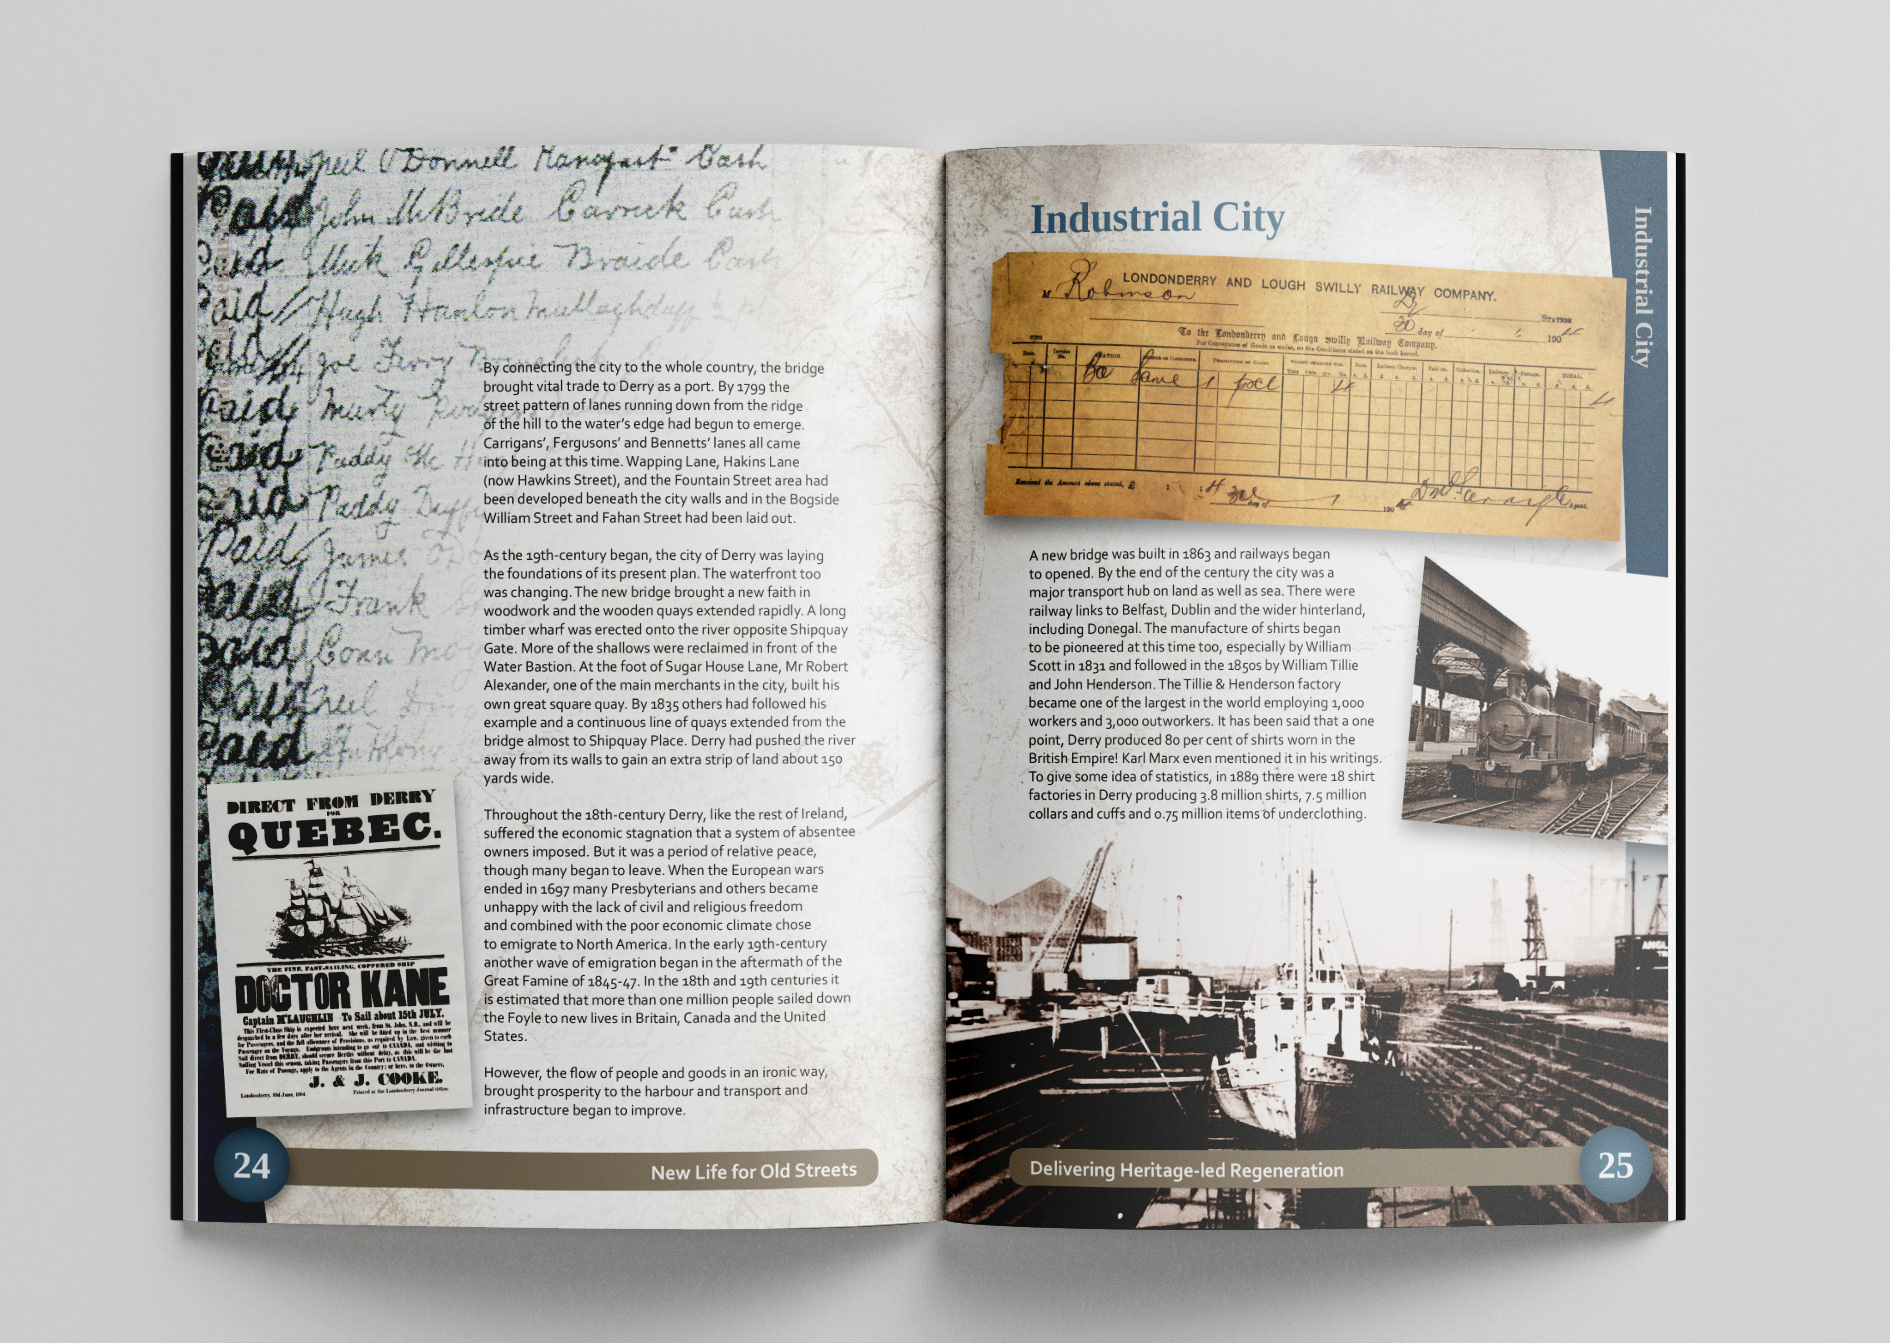 Neil O'Donnell Cash
Paid John McBride Carrick Cash
Paid Mick Gillespie Braide Cash
Paid Hugh Hanlon Mullaghduff
Joe Ferry
Paid
Paid Paddy Mc
Paid Paddy Duffy
Paid James
Paid Frank
Paid Conn
Paid Neil
Paid
By connecting the city to the whole country, the bridge
brought vital trade to Derry as a port. By 1799 the
street pattern of lanes running down from the ridge
of the hill to the water's edge had begun to emerge.
Carrigans', Fergusons' and Bennetts' lanes all came
into being at this time. Wapping Lane, Hakins Lane
(now Hawkins Street), and the Fountain Street area had
been developed beneath the city walls and in the Bogside
William Street and Fahan Street had been laid out.
As the 19th-century began, the city of Derry was laying
the foundations of its present plan. The waterfront too
was changing. The new bridge brought a new faith in
woodwork and the wooden quays extended rapidly. A long
timber wharf was erected onto the river opposite Shipquay
Gate. More of the shallows were reclaimed in front of the
Water Bastion. At the foot of Sugar House Lane, Mr Robert
Alexander, one of the main merchants in the city, built his
own great square quay. By 1835 others had followed his
example and a continuous line of quays extended from the
bridge almost to Shipquay Place. Derry had pushed the river
away from its walls to gain an extra strip of land about 150
yards wide.
Throughout the 18th-century Derry, like the rest of Ireland,
suffered the economic stagnation that a system of absentee
owners imposed. But it was a period of relative peace,
though many began to leave. When the European wars
ended in 1697 many Presbyterians and others became
unhappy with the lack of civil and religious freedom
and combined with the poor economic climate chose
to emigrate to North America. In the early 19th-century
another wave of emigration began in the aftermath of the
Great Famine of 1845-47. In the 18th and 19th centuries it
is estimated that more than one million people sailed down
the Foyle to new lives in Britain, Canada and the United
States.
However, the flow of people and goods in an ironic way,
brought prosperity to the harbour and transport and
infrastructure began to improve.
DIRECT FROM DERRY
FOR
QUEBEC.
THE FINE, FAST-SAILING, COPPERED SHIP
DOCTOR KANE
Captain M'LAUGHLIN To Sail about 15th JULY.
This First-Class Ship is expected here next week, from St. John, N.B., and will be
despatched in a few days after her arrival. She will be fitted up in the best manner
for Passengers, and the full allowance of Provisions, as required by Law, given to each
Passenger on the Voyage. Emigrants intending to go out to CANADA, and wishing to
Sail direct from DERRY, should secure Berths without delay, as this will be the last
Sailing Vessel this season, taking Passengers from this Port to CANADA.
For Rate of Passage, apply to the Agents in the Country; or here, to the Owners,
J. & J. COOKE.
Londonderry, June, 1864
Printed at the Londonderry Journal Office.
24
New Life for Old Streets
Industrial City
Industrial City
LONDONDERRY AND LOUGH SWILLY RAILWAY COMPANY.
M Robinson
STATION
30 day of 190
To the Londonderry and Lough Swilly Railway Company,
For Conveyance of Goods as under, on the Conditions stated on the back hereof.
Date. Invoice No. STATION. DESCRIPTION OF GOODS. Rate. Railway Charges. Paid on. TOTAL.
Same 1 4
Received the Amount above stated, £ : : 4
day of 190 Agent.
A new bridge was built in 1863 and railways began
to opened. By the end of the century the city was a
major transport hub on land as well as sea. There were
railway links to Belfast, Dublin and the wider hinterland,
including Donegal. The manufacture of shirts began
to be pioneered at this time too, especially by William
Scott in 1831 and followed in the 1850s by William Tillie
and John Henderson. The Tillie & Henderson factory
became one of the largest in the world employing 1,000
workers and 3,000 outworkers. It has been said that a one
point, Derry produced 80 per cent of shirts worn in the
British Empire! Karl Marx even mentioned it in his writings.
To give some idea of statistics, in 1889 there were 18 shirt
factories in Derry producing 3.8 million shirts, 7.5 million
collars and cuffs and 0.75 million items of underclothing.
Delivering Heritage-led Regeneration
25